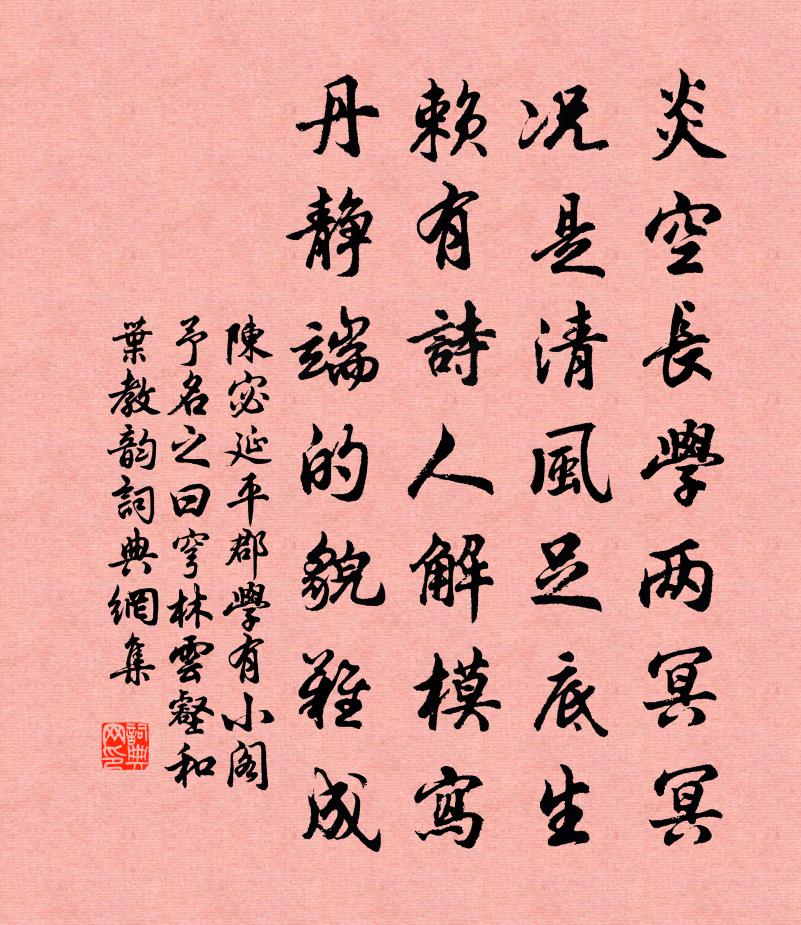 炎空長學两冥冥
况是清風足底生
賴有詩人解模寫
丹靜端的貌難成
陳宓延平郡學有小閣
予名之曰穹林雲壑和
葉教韵詞典網集
詞典网印